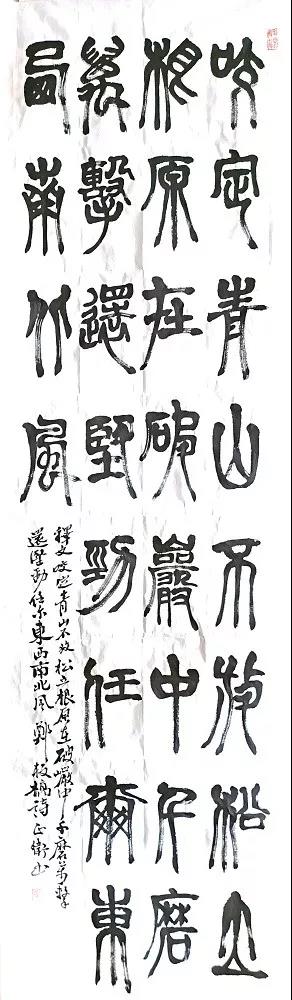 咬定青山不放松立
根原在破巖中千磨
萬擊還堅勁任爾東
西南北風
釋文咬定青山不放松立根原在破巖中千磨萬擊
還堅勁任尔東西南北风鄭板橋詩正衛